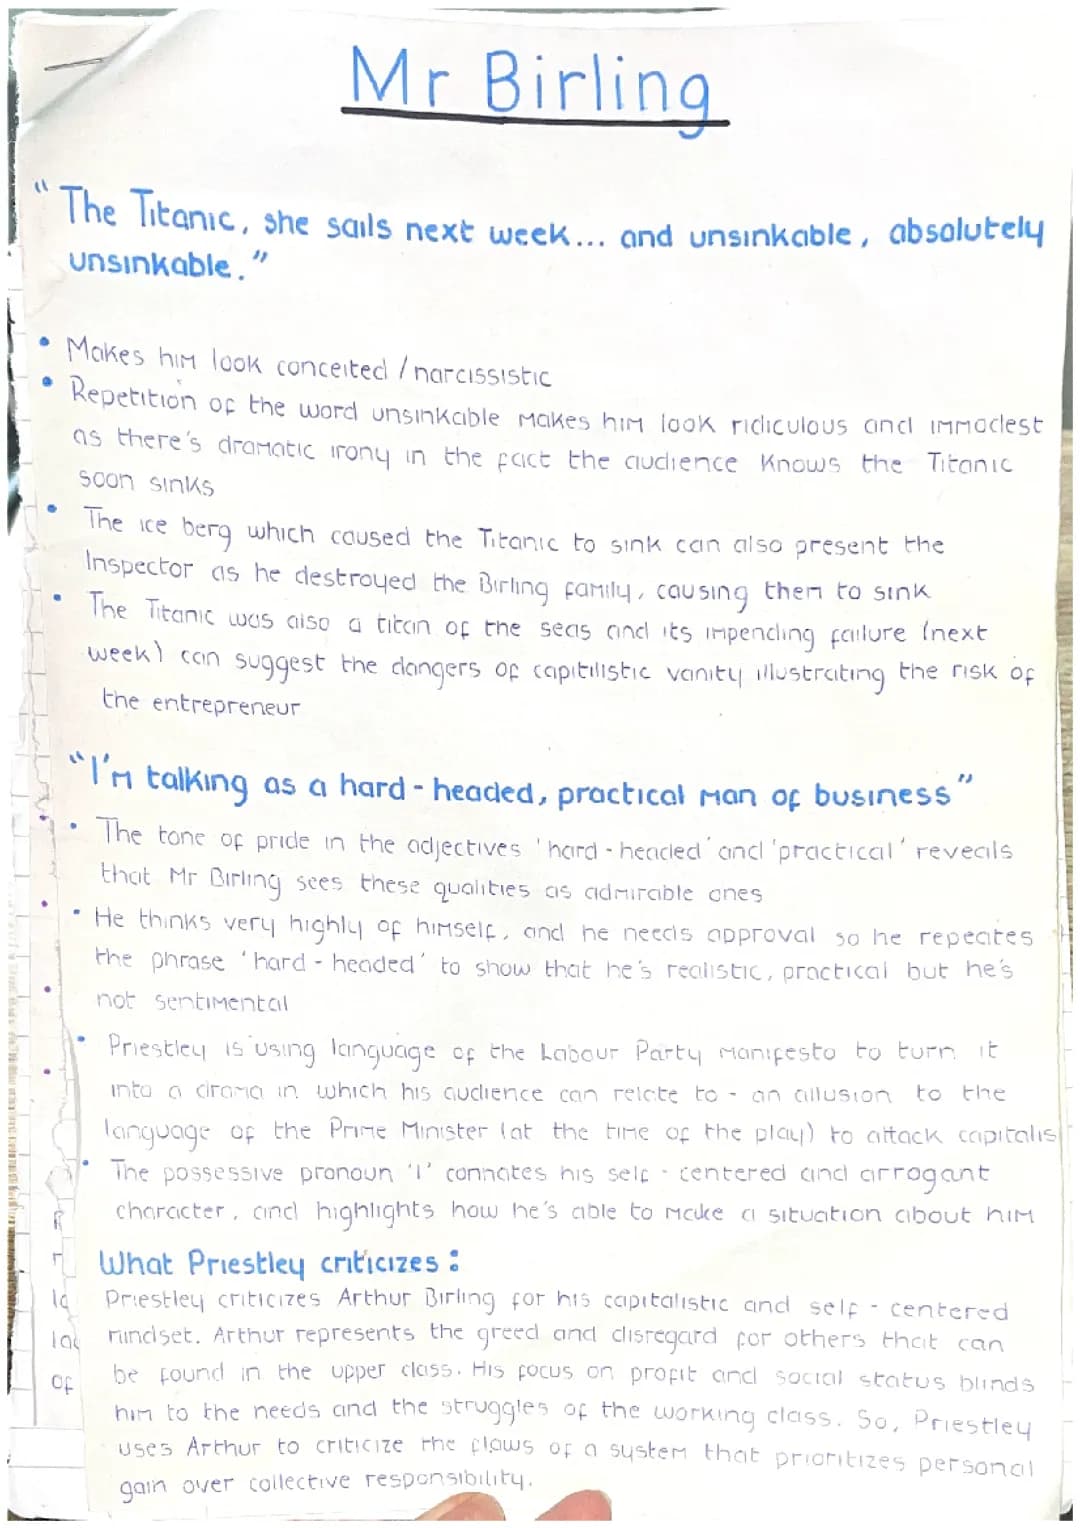 Mr Birling
"The Titanic, she sails next week... and unsinkable, absolutely
unsinkable."
• Makes him look conceited / narcissistic
• Repetition of the word unsinkable makes him look ridiculous and immodest
as there's dramatic irony in the fact the audience knows the Titanic
soon sinks
• The ice berg which caused the Titanic to sink can also present the
Inspector as he destroyed the Birling family, causing them to sink
• The Titanic was also a titan of the seas and its impending failure (next
week) can suggest the dangers of capitilistic vanity illustrating the risk of
the entrepreneur
"I'm talking as a hard-headed, practical man of business"
• The tone of pride in the adjectives 'hard-headed' and 'practical' reveals
that Mr Birling sees these qualities as admirable ones
• He thinks very highly of himself, and he needs approval so he repeates
the phrase 'hard-headed' to show that he's realistic, practical but he's
not sentimental
• Priestley is using language of the Labour Party manifesto to turn it
into a drama in which his audience can relate to - an allusion to the
language of the Prime Minister (at the time of the play) to attack capitalis
• The possessive pronoun 'I' connotes his self-centered and arrogant
character, and highlights how he's able to make a situation about him
What Priestley criticizes:
Priestley criticizes Arthur Birling for his capitalistic and self-centered
mindset. Arthur represents the greed and disregard for others that can
be found in the upper class. His focus on profit and social status blinds
him to the needs and the struggles of the working class. So, Priestley
uses Arthur to criticize the flaws of a system that prioritizes personal
gain over collective responsibility.
of